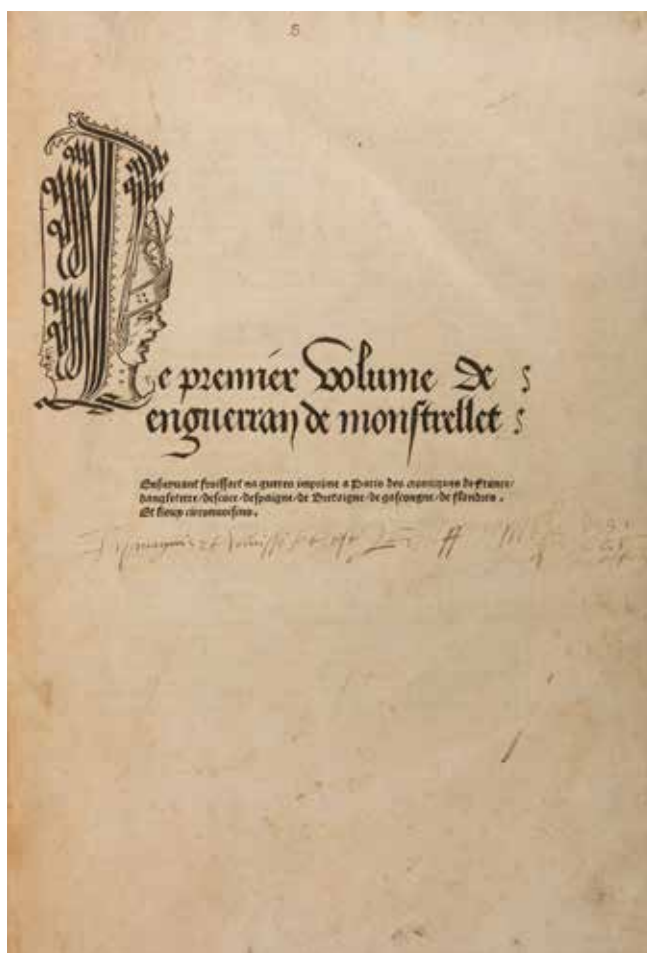 5
Le premier volume de
enguerran de monstrellet
Ensuivant froissart na gueres imprime a Paris des croniques de France/
dangleterre/descoce/despaigne/de Bretaigne/de gascongne/de flandres.
Et lieux circonvoisins.